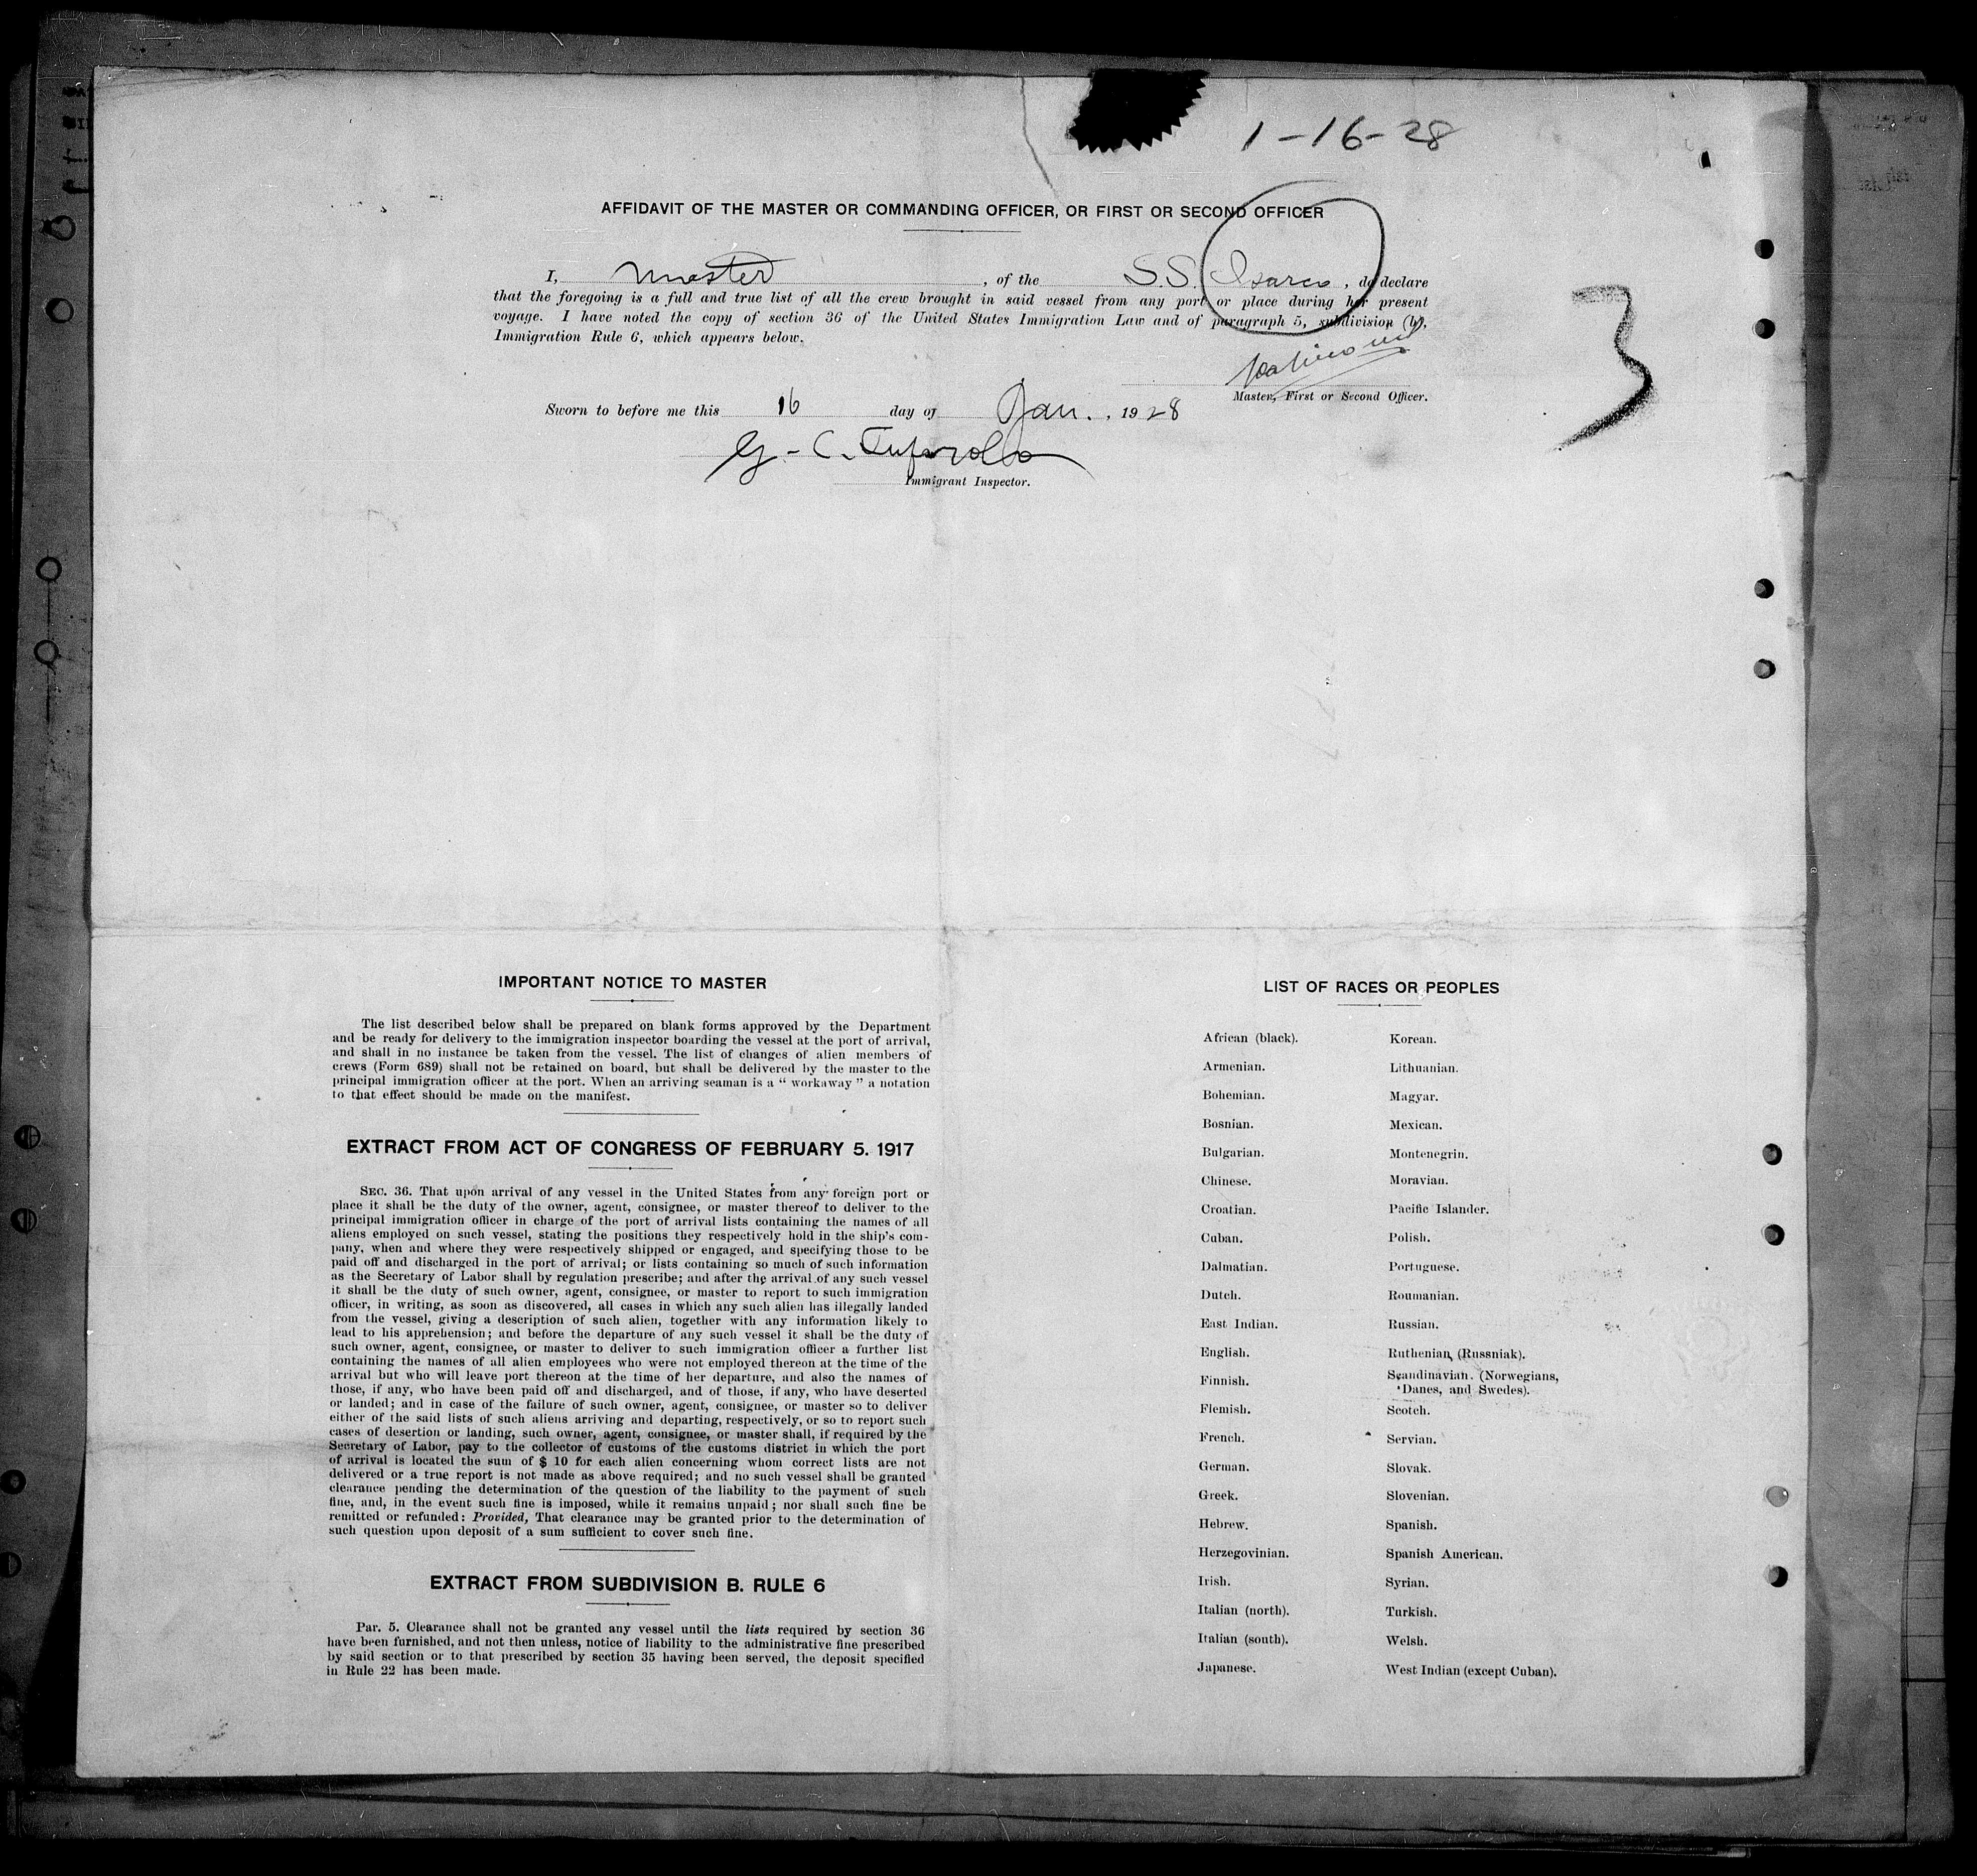 1-16-28
AFFIDAVIT OF THE MASTER OR COMMANDING OFFICER, OR FIRST OR SECOND OFFICER
I, master, of the S.S. Isarco, do declare
that the foregoing is a full and true list of all the crew brought in said vessel from any port or place during her present
voyage. I have noted the copy of section 36 of the United States Immigration Law and of paragraph 5, subdivision (b),
Immigration Rule 6, which appears below.
3
Master, First or Second Officer.
Sworn to before me this 16 day of Jan., 1928
G. C.
Immigrant Inspector.
IMPORTANT NOTICE TO MASTER
The list described below shall be prepared on blank forms approved by the Department
and be ready for delivery to the immigration inspector boarding the vessel at the port of arrival,
and shall in no instance be taken from the vessel. The list of changes of alien members of
crews (Form 689) shall not be retained on board, but shall be delivered by the master to the
principal immigration officer at the port. When an arriving seaman is a “ workaway ” a notation
to that effect should be made on the manifest.
EXTRACT FROM ACT OF CONGRESS OF FEBRUARY 5. 1917
SEC. 36. That upon arrival of any vessel in the United States from any foreign port or
place it shall be the duty of the owner, agent, consignee, or master thereof to deliver to the
principal immigration officer in charge of the port of arrival lists containing the names of all
aliens employed on such vessel, stating the positions they respectively hold in the ship's com-
pany, when and where they were respectively shipped or engaged, and specifying those to be
paid off and discharged in the port of arrival; or lists containing so much of such information
as the Secretary of Labor shall by regulation prescribe; and after the arrival of any such vessel
it shall be the duty of such owner, agent, consignee, or master to report to such immigration
officer, in writing, as soon as discovered, all cases in which any such alien has illegally landed
from the vessel, giving a description of such alien, together with any information likely to
lead to his apprehension; and before the departure of any such vessel it shall be the duty of
such owner, agent, consignee, or master to deliver to such immigration officer a further list
containing the names of all alien employees who were not employed thereon at the time of the
arrival but who will leave port thereon at the time of her departure, and also the names of
those, if any, who have been paid off and discharged, and of those, if any, who have deserted
or landed; and in case of the failure of such owner, agent, consignee, or master so to deliver
either of the said lists of such aliens arriving and departing, respectively, or so to report such
cases of desertion or landing, such owner, agent, consignee, or master shall, if required by the
Secretary of Labor, pay to the collector of customs of the customs district in which the port
of arrival is located the sum of $ 10 for each alien concerning whom correct lists are not
delivered or a true report is not made as above required; and no such vessel shall be granted
clearance pending the determination of the question of the liability to the payment of such
fine, and, in the event such fine is imposed, while it remains unpaid; nor shall such fine be
remitted or refunded: Provided, That clearance may be granted prior to the determination of
such question upon deposit of a sum sufficient to cover such fine.
EXTRACT FROM SUBDIVISION B. RULE 6
Par. 5. Clearance shall not be granted any vessel until the lists required by section 36
have been furnished, and not then unless, notice of liability to the administrative fine prescribed
by said section or to that prescribed by section 35 having been served, the deposit specified
in Rule 22 has been made.
LIST OF RACES OR PEOPLES
African (black).
Armenian.
Bohemian.
Bosnian.
Bulgarian.
Chinese.
Croatian.
Cuban.
Dalmatian.
Dutch.
East Indian.
English.
Finnish.
Flemish.
French.
German.
Greek.
Hebrew.
Herzegovinian.
Irish.
Italian (north).
Italian (south).
Japanese.
Korean.
Lithuanian.
Magyar.
Mexican.
Montenegrin.
Moravian.
Pacific Islander.
Polish.
Portuguese.
Roumanian.
Russian.
Ruthenian (Russniak).
Scandinavian. (Norwegians,
Danes, and Swedes).
Scotch.
Servian.
Slovak.
Slovenian.
Spanish.
Spanish American.
Syrian.
Turkish.
Welsh.
West Indian (except Cuban).